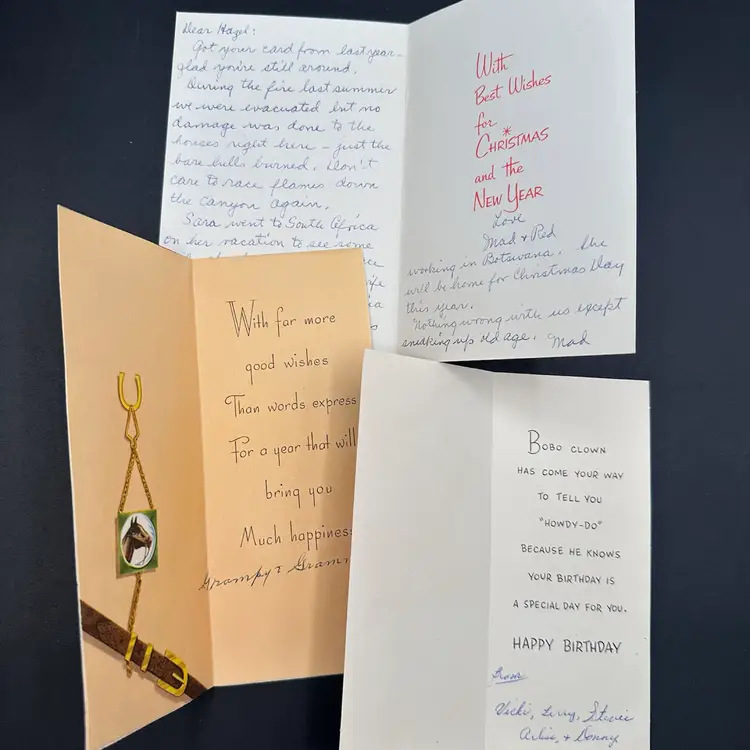 Dear Hazel:
Got your card from last year –
glad you're still around.
During the fire last summer
we were evacuated but no
damage was done to the
houses right here – just the
bare hills burned. Don't
care to race flames down
the canyon again.
Sara went to South Africa
on her vacation to see some
With
Best Wishes
for
CHRISTMAS
and the
NEW YEAR
Love
Mad + Red
working in Botswana. She
will be home for Christmas Day
this year.
Nothing wrong with us except
sneaking up old age. Mad
With far more
good wishes
Than words express
For a year that will
bring you
Much happiness
Grampy & Gram
BOBO CLOWN
HAS COME YOUR WAY
TO TELL YOU
"HOWDY-DO"
BECAUSE HE KNOWS
YOUR BIRTHDAY IS
A SPECIAL DAY FOR YOU.
HAPPY BIRTHDAY
From
Vicki, Lerry, Stevie
+ Donny